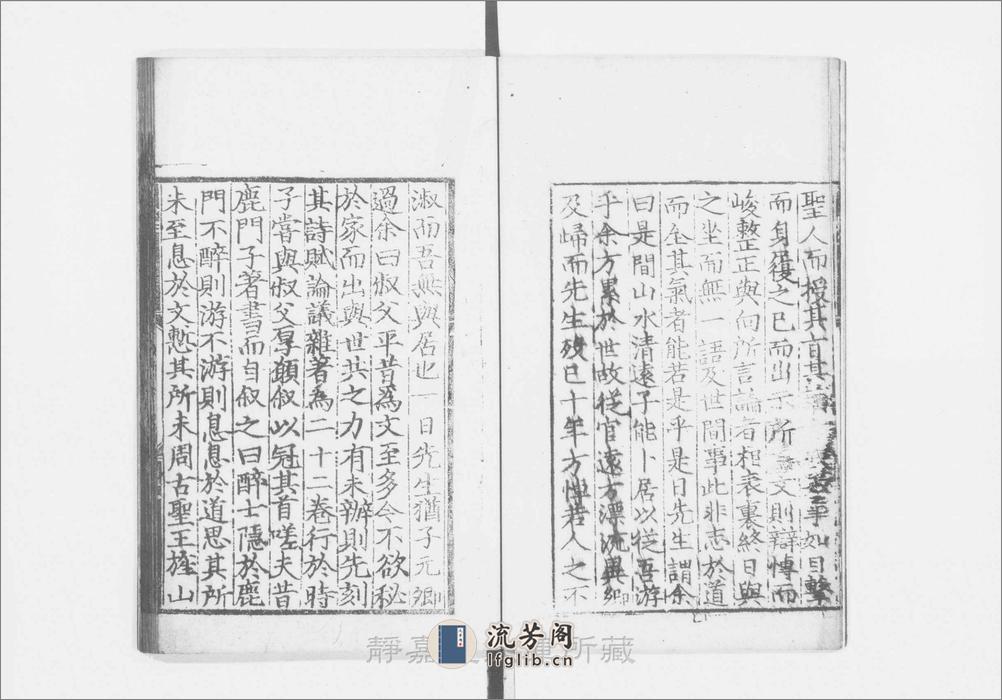 聖人而授其言其事如目擊
而身履之已而出示所為文則辯博而
峻整正與向所言論者相表裏終日與
之坐而無一語及世間事此非志於道
而全其氣者能若是乎是日先生謂余
曰是間山水清遠子能卜居以從吾游
乎余方累於世故從官遠方漂流異鄉
及歸而先生歿已十年方悼若人之不
淑而吾無與居也一日先生猶子元卿
過余曰叔父平昔為文至多今不欲秘
於家而出與世共之力有未辦則先刻
其詩賦論議雜著為二十二卷行於時
子嘗與叔父厚願叙以冠其首嗟夫昔
鹿門子著書而自叙之曰醉士隱於鹿
門不醉則游不游則息息於道思其所
未至息於文慙其所未周古聖王旌山
靜嘉
所藏
流芳阁
lfglib.cn